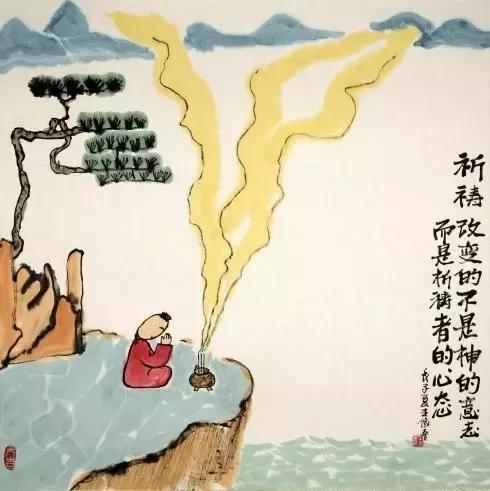 祈祷改变的不是神的意志
而是祈祷者的心态
戊子夏